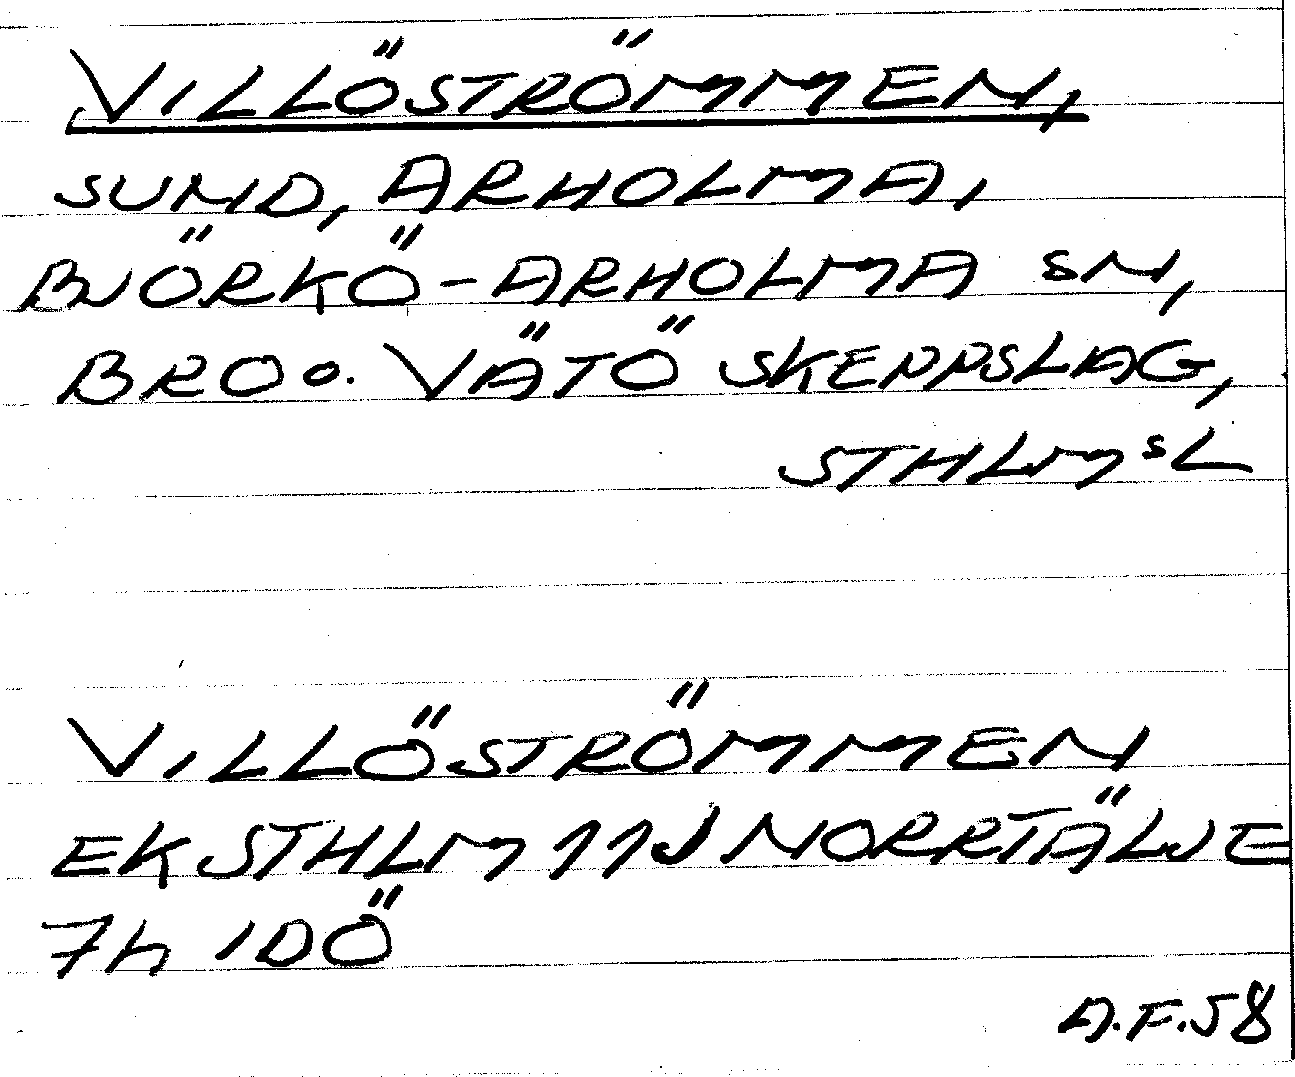 VILLÖSTRÖMMEN,
SUND, ARHOLMA,
BJÖRKÖ-ARHOLMA SN,
BRO o. VÄTÖ SKEPPSLAG,
STHLMˢL
VILLÖSTRÖMMEN
EK STHLM 11J NORRTÄLJE
7h IDÖ
A.F.58